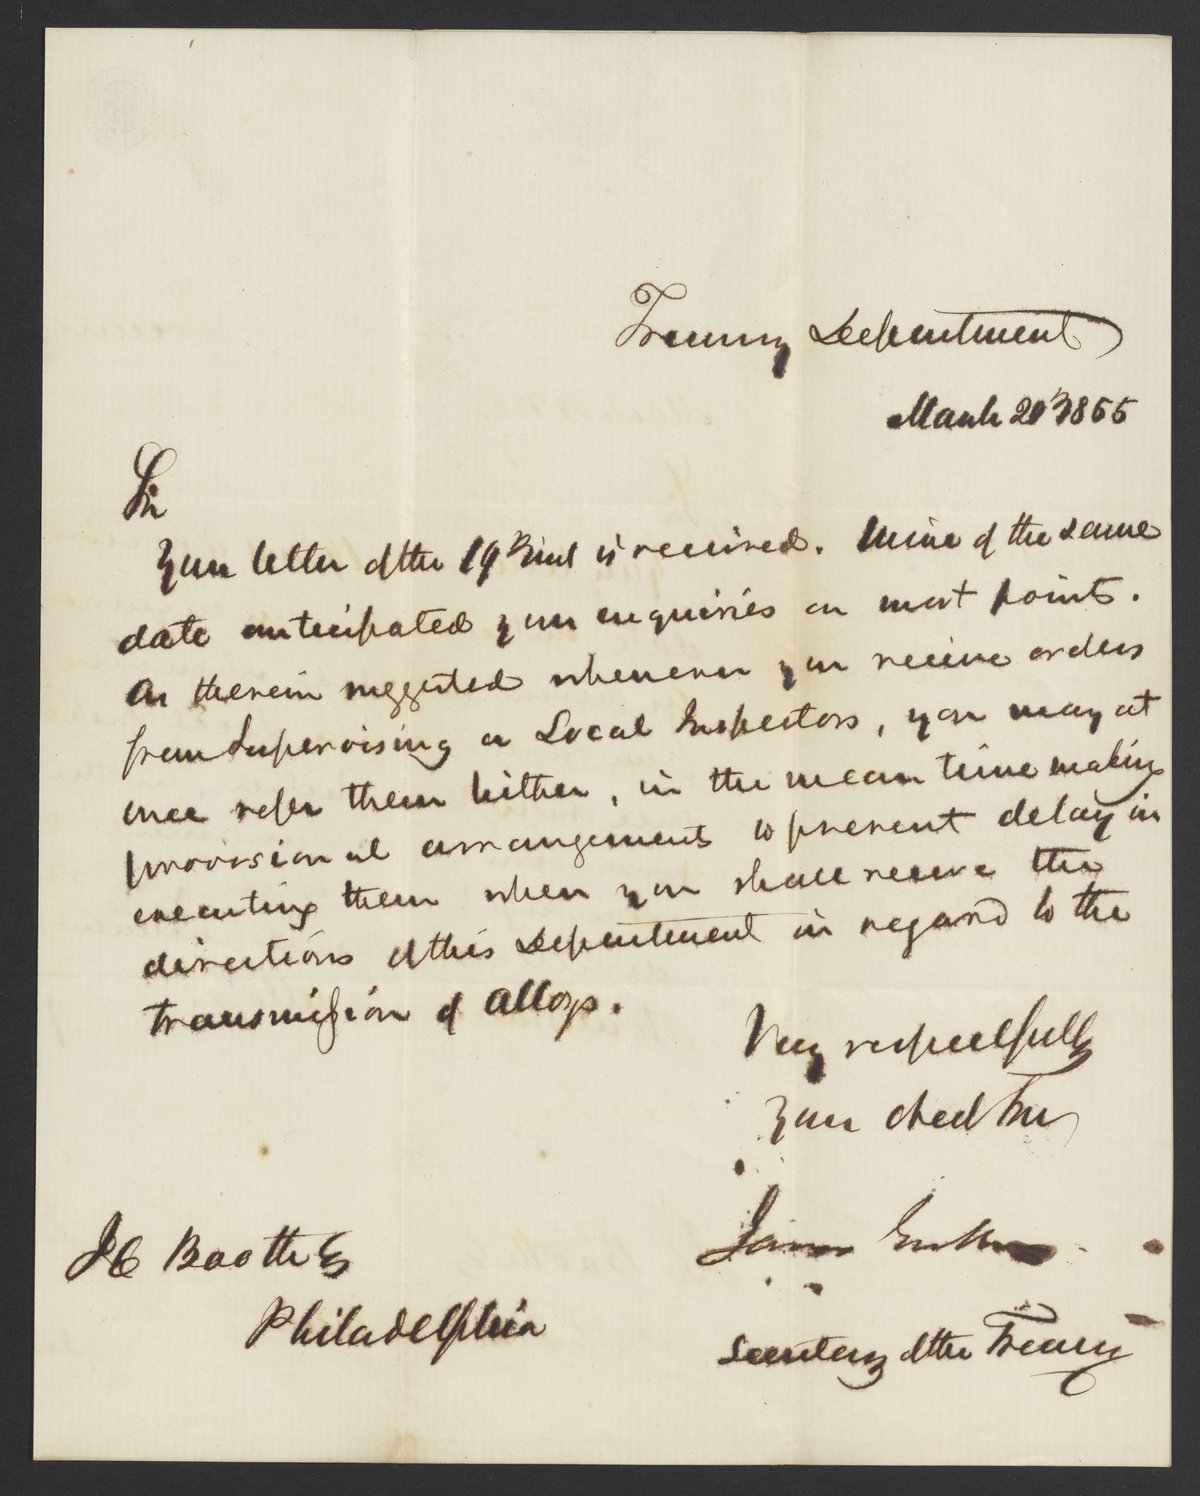 Treasury Department
March 20th 1855
Sir
Your letter of the 19th inst is received. Mine of the same
date anticipated your enquiries on most points.
As therein suggested whenever you receive orders
from Supervising or Local Inspectors, you may at
once refer them hither, in the mean time making
provisional arrangements to prevent delay in
executing them when you shall receive the
directions of this Department in regard to the
transmission of Alloys.
Very respectfully
Your obed Sev
James Guthrie
Secretary of the Treasury
J C Booth Esq
Philadelphia